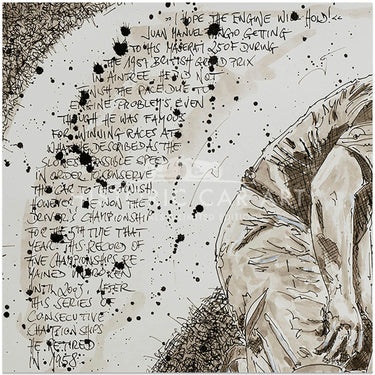 >>I HOPE THE ENGINE WILL HOLD!<<
JUAN MANUEL FANGIO GETTING
INTO HIS MASERATI 250F DURING
THE 1957 BRITISH GRAND PRIX
IN AINTREE. HE DID NOT
FINISH THE RACE DUE TO
ENGINE PROBLEMS, EVEN
THOUGH HE WAS FAMOUS
FOR WINNING RACES AT
WHAT HE DESCRIBED AS THE
SLOWEST POSSIBLE SPEED
IN ORDER TO CONSERVE
THE CAR TO THE FINISH.
HOWEVER HE WON THE
DRIVER'S CHAMPIONSHIP
FOR THE 5TH TIME THAT
YEAR. THIS RECORD OF
FIVE CHAMPIONSHIPS RE-
MAINED UNBROKEN
UNTIL 2003. AFTER
THIS SERIES OF
CONSECUTIVE
CHAMPIONSHIPS
HE RETIRED
IN 1958
CLASSIC CAR ART